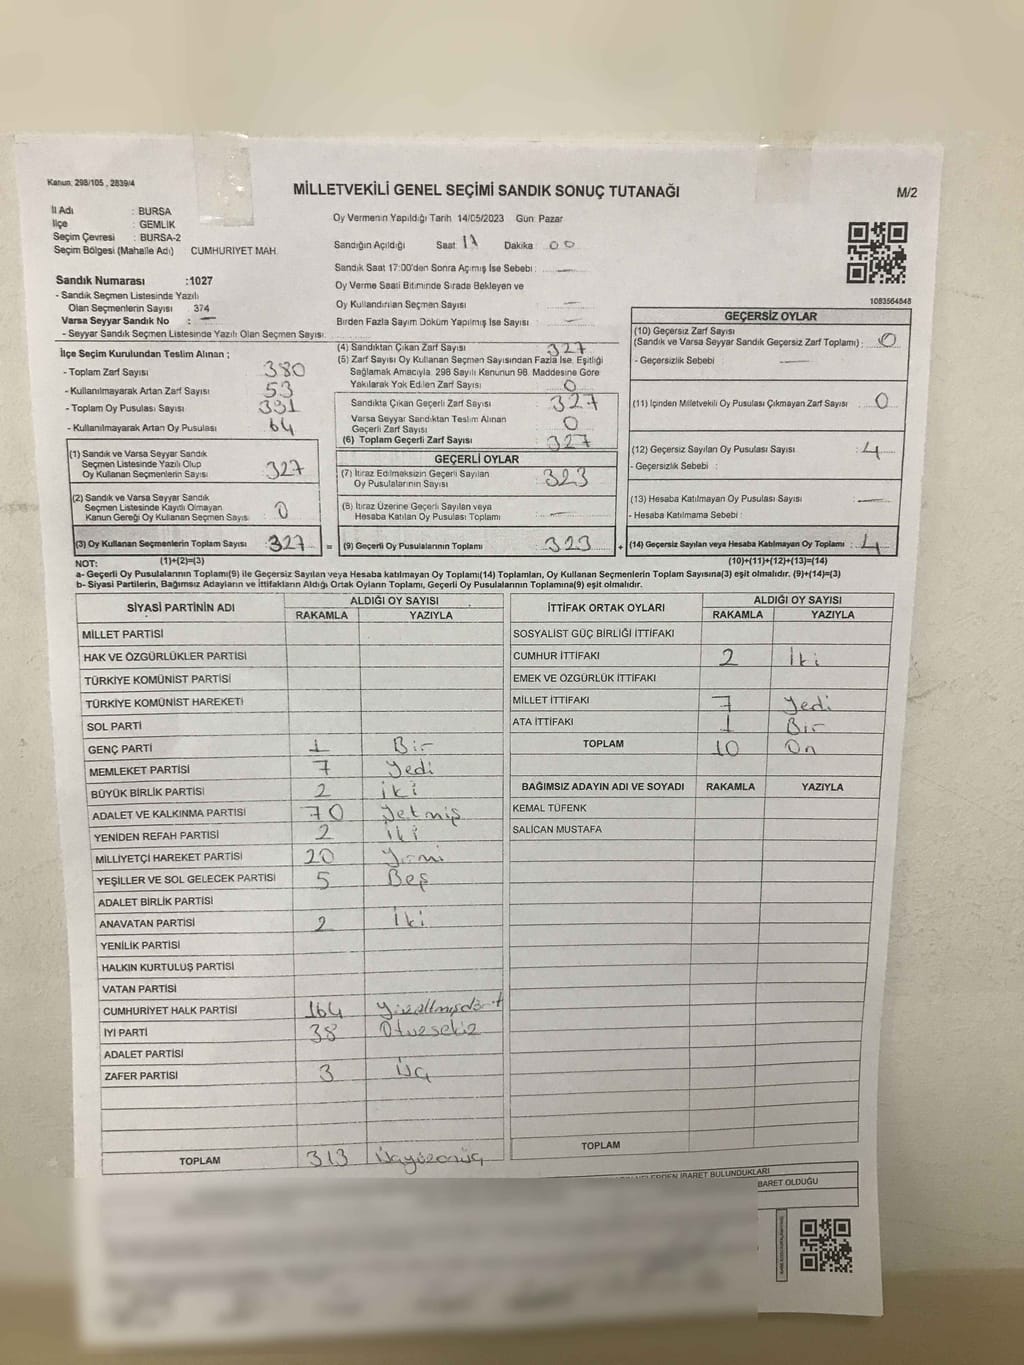 Kanun: 298/105 , 2839/4
MİLLETVEKİLİ GENEL SEÇİMİ SANDIK SONUÇ TUTANAĞI
M/2
İl Adı : BURSA
İlçe : GEMLİK
Seçim Çevresi : BURSA-2
Seçim Bölgesi (Mahalle Adı) CUMHURIYET MAH.
Oy Vermenin Yapıldığı Tarih 14/05/2023 Gün: Pazar
Sandığın Açıldığı Saat: 17 Dakika : 00
Sandık Saat 17:00'den Sonra Açımış İse Sebebi : —
Oy Verme Saati Bitiminde Sırada Bekleyen ve
Oy Kullandırılan Seçmen Sayısı : —
Birden Fazla Sayım Döküm Yapılmış İse Sayısı : —
1083564848
Sandık Numarası :1027
- Sandık Seçmen Listesinde Yazılı
Olan Seçmenlerin Sayısı 374
Varsa Seyyar Sandık No : —
- Seyyar Sandık Seçmen Listesinde Yazılı Olan Seçmen Sayısı:
İlçe Seçim Kurulundan Teslim Alınan ;
- Toplam Zarf Sayısı : 380
- Kullanılmayarak Artan Zarf Sayısı : 53
- Toplam Oy Pusulası Sayısı : 391
- Kullanılmayarak Artan Oy Pusulası : 64
(1) Sandık ve Varsa Seyyar Sandık
Seçmen Listesinde Yazılı Olup
Oy Kullanan Seçmenlerin Sayısı : 327
(2) Sandık ve Varsa Seyyar Sandık
Seçmen Listesinde Kayıtlı Olmayan
Kanun Gereği Oy Kullanan Seçmen Sayısı : 0
(3) Oy Kullanan Seçmenlerin Toplam Sayısı : 327
(4) Sandıktan Çıkan Zarf Sayısı : 327
(5) Zarf Sayısı Oy Kullanan Seçmen Sayısından Fazla İse, Eşitliği
Sağlamak Amacıyla, 298 Sayılı Kanunun 98. Maddesine Göre
Yakılarak Yok Edilen Zarf Sayısı : 0
Sandıkta Çıkan Geçerli Zarf Sayısı : 327
Varsa Seyyar Sandıktan Teslim Alınan
Geçerli Zarf Sayısı : 0
(6) Toplam Geçerli Zarf Sayısı : 327
GEÇERLİ OYLAR
(7) İtiraz Edilmeksizin Geçerli Sayılan
Oy Pusulalarının Sayısı : 323
(8) İtiraz Üzerine Geçerli Sayılan veya
Hesaba Katılan Oy Pusulası Toplamı : —
= (9) Geçerli Oy Pusulalarının Toplamı : 323
GEÇERSİZ OYLAR
(10) Geçersiz Zarf Sayısı
(Sandık ve Varsa Seyyar Sandık Geçersiz Zarf Toplamı) : 0
- Geçersizlik Sebebi : —
(11) İçinden Milletvekili Oy Pusulası Çıkmayan Zarf Sayısı : 0
(12) Geçersiz Sayılan Oy Pusulası Sayısı : 4
- Geçersizlik Sebebi :
(13) Hesaba Katılmayan Oy Pusulası Sayısı : —
- Hesaba Katılmama Sebebi :
+ (14) Geçersiz Sayılan veya Hesaba Katılmayan Oy Toplamı : 4
NOT: (1)+(2)=(3) (10)+(11)+(12)+(13)=(14)
a- Geçerli Oy Pusulalarının Toplamı(9) ile Geçersiz Sayılan veya Hesaba katılmayan Oy Toplamı(14) Toplamları, Oy Kullanan Seçmenlerin Toplam Sayısına(3) eşit olmalıdır. (9)+(14)=(3)
b- Siyasi Partilerin, Bağımsız Adayların ve İttifakların Aldığı Ortak Oyların Toplamı, Geçerli Oy Pusulalarının Toplamına(9) eşit olmalıdır.
SİYASİ PARTİNİN ADI ALDIĞI OY SAYISI
RAKAMLA YAZIYLA
MİLLET PARTİSİ
HAK VE ÖZGÜRLÜKLER PARTİSİ
TÜRKİYE KOMÜNİST PARTİSİ
TÜRKİYE KOMÜNİST HAREKETİ
SOL PARTİ
GENÇ PARTİ 1 Bir
MEMLEKET PARTİSİ 7 Yedi
BÜYÜK BİRLİK PARTİSİ 2 İki
ADALET VE KALKINMA PARTİSİ 70 Yetmiş
YENİDEN REFAH PARTİSİ 2 İki
MİLLİYETÇİ HAREKET PARTİSİ 20 Yirmi
YEŞİLLER VE SOL GELECEK PARTİSİ 5 Beş
ADALET BİRLİK PARTİSİ
ANAVATAN PARTİSİ 2 İki
YENİLİK PARTİSİ
HALKIN KURTULUŞ PARTİSİ
VATAN PARTİSİ
CUMHURİYET HALK PARTİSİ 164 Yüzaltmışdört
İYİ PARTİ 38 Otuzsekiz
ADALET PARTİSİ
ZAFER PARTİSİ 3 Üç
TOPLAM 313 Üçyüzonüç
İTTİFAK ORTAK OYLARI ALDIĞI OY SAYISI
RAKAMLA YAZIYLA
SOSYALİST GÜÇ BİRLİĞİ İTTİFAKI
CUMHUR İTTİFAKI 2 İki
EMEK VE ÖZGÜRLÜK İTTİFAKI
MİLLET İTTİFAKI 7 Yedi
ATA İTTİFAKI 1 Bir
TOPLAM 10 On
BAĞIMSIZ ADAYIN ADI VE SOYADI RAKAMLA YAZIYLA
KEMAL TÜFENK
SALİCAN MUSTAFA
TOPLAM
İBARET BULUNDUKLARI
BARET OLDUĞU